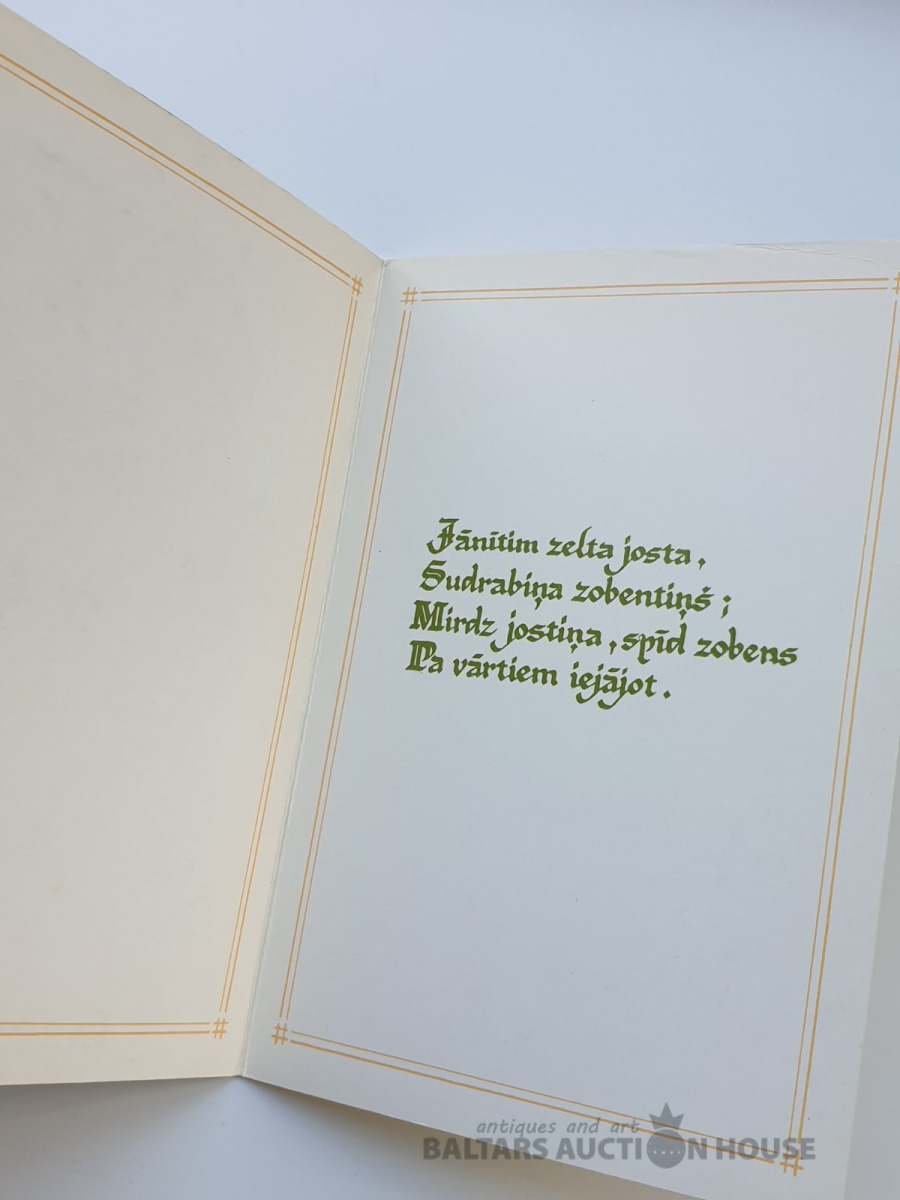 Jānītim zelta josta,
Sudrabiņa zobentiņš;
Mirdz jostiņa, spīd zobens
Pa vārtiem iejājot.
antiques and art
BALTARS AUCTION HOUSE